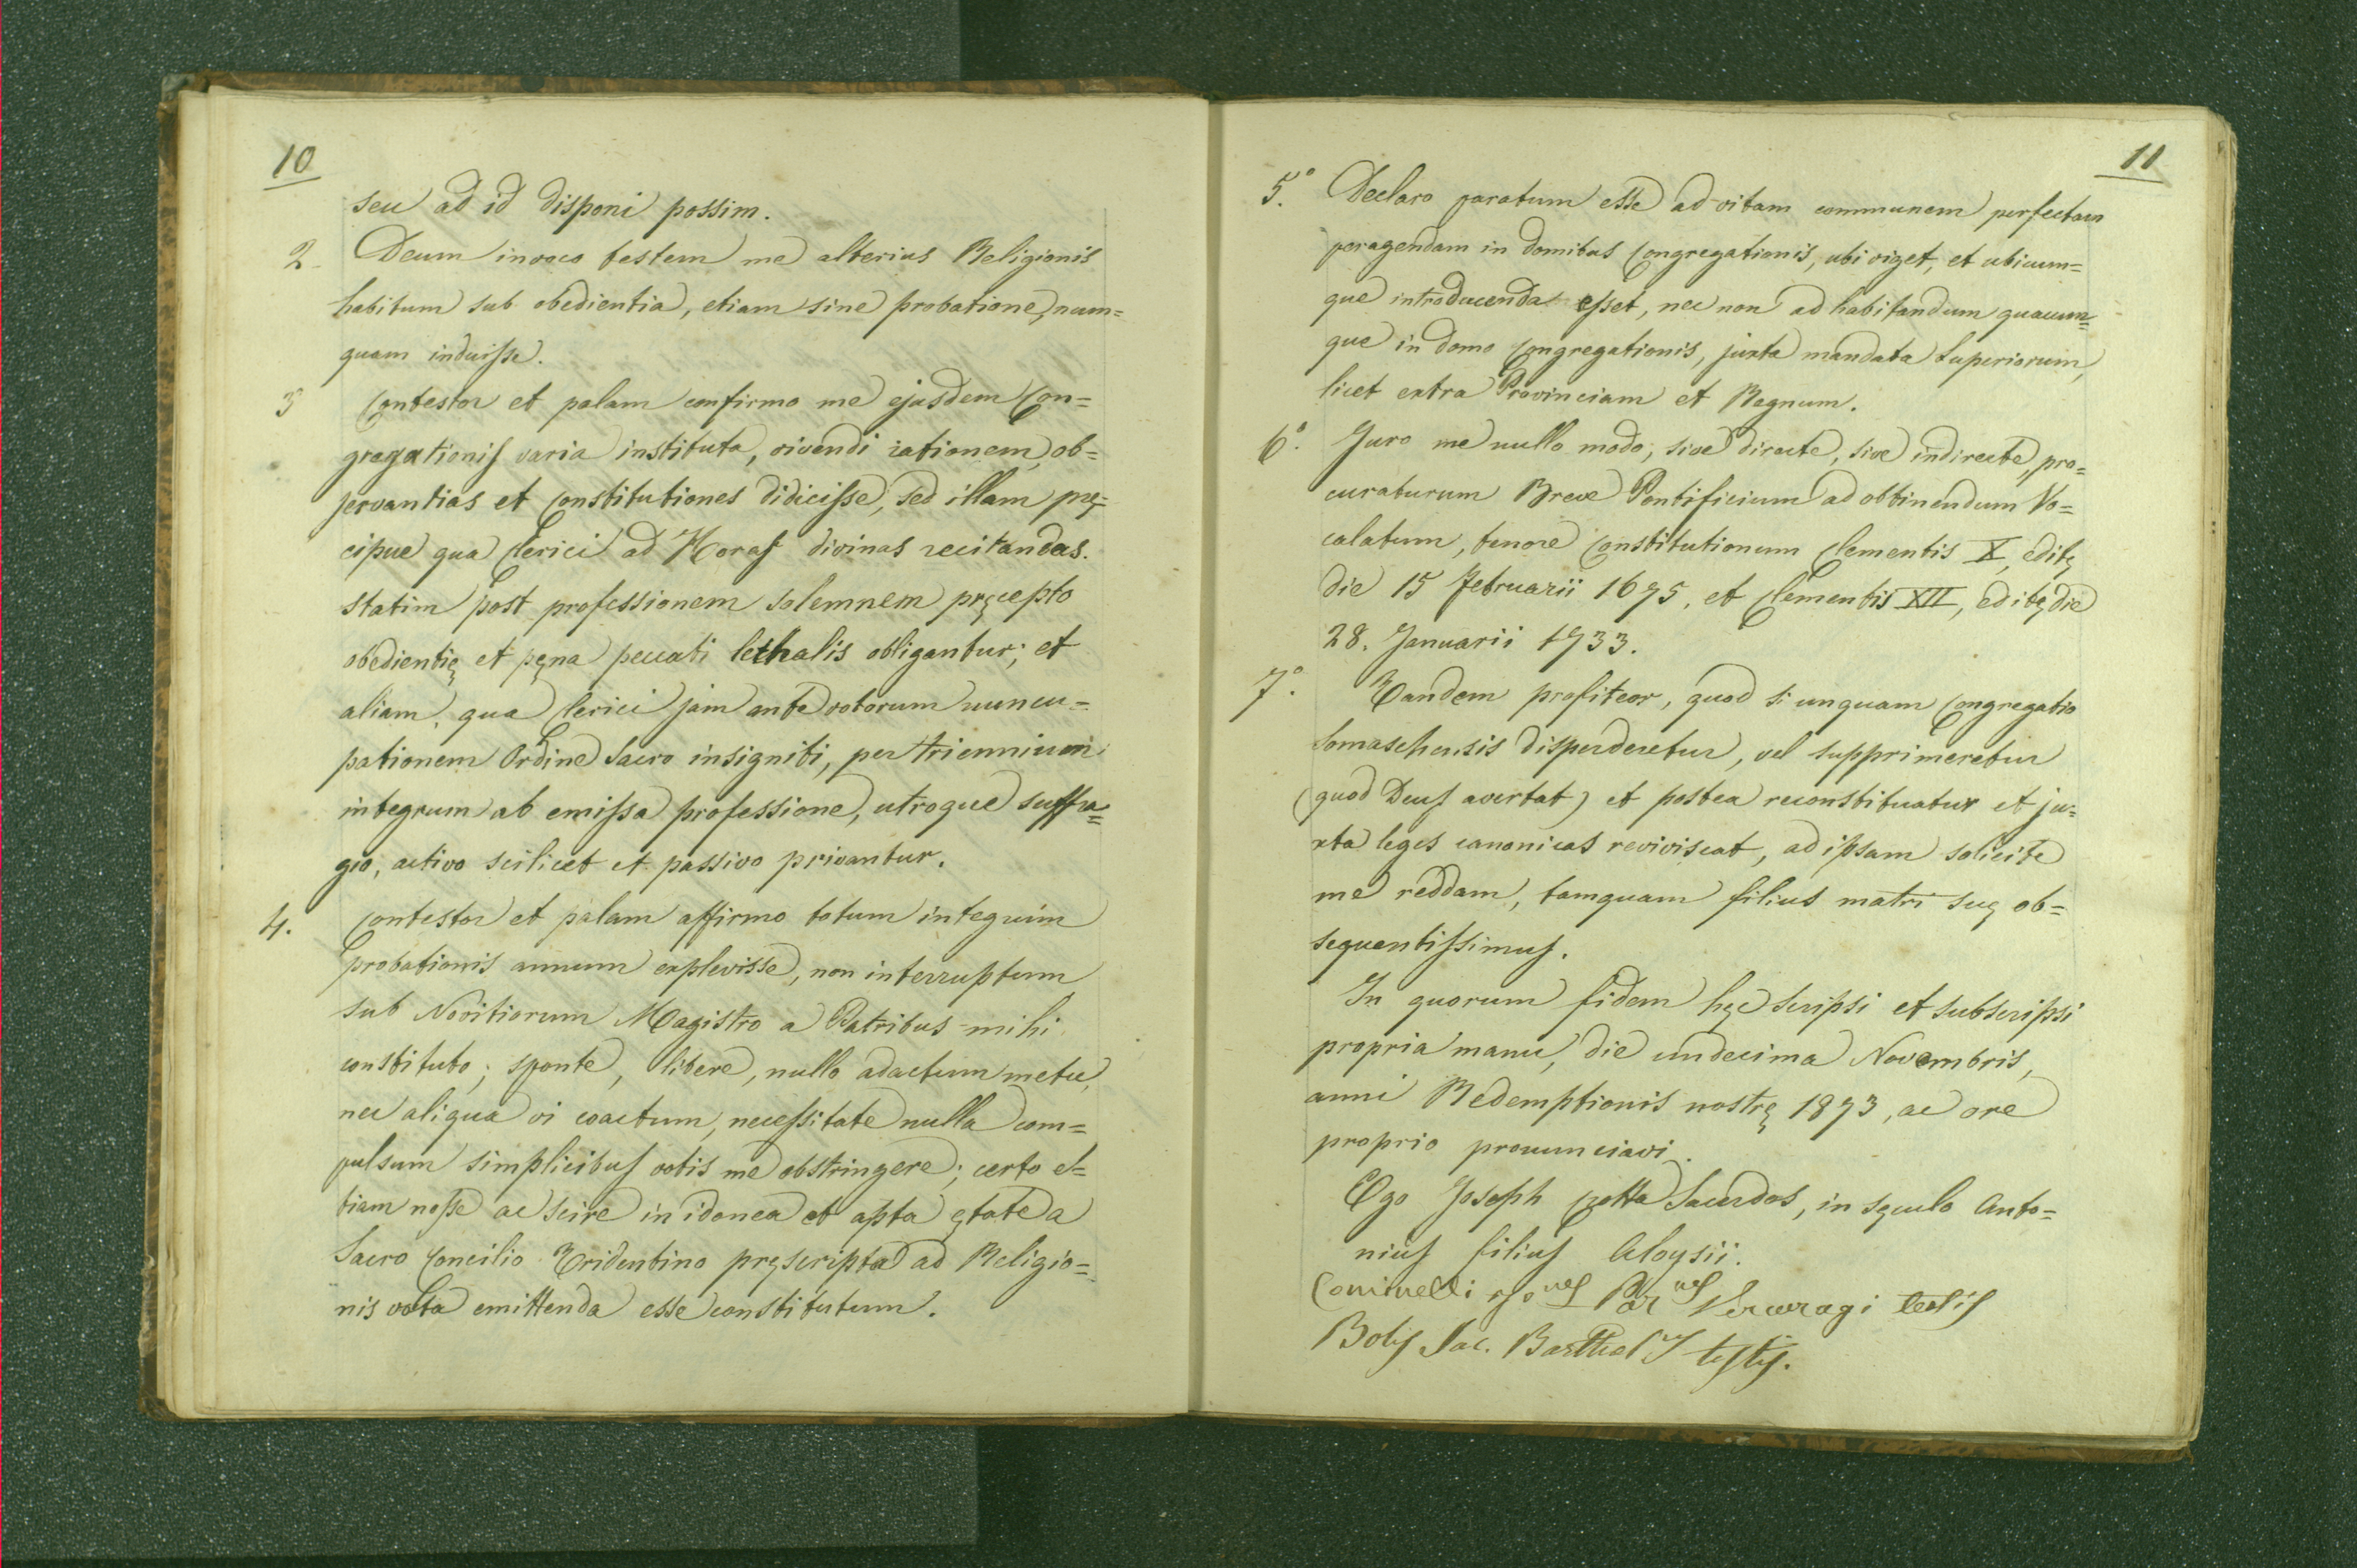 10
seu ad id disponi possim.
2. Deum invoco testem me alterius Religionis
habitum sub obedientia, etiam sine probatione, num=
quam induisse.
3 Contestor et palam confirmo me ejusdem Con=
gregationis varia instituta, vivendi rationem, ob=
servantias et Constitutiones didicisse, sed illam prę=
cipue qua Clerici ad Horas divinas recitandas.
statim post professionem solemnem pręcepto
obedientię et pęna peccati lethalis obligantur; et
aliam, qua Clerici jam ante votorum nuncu=
pationem Ordine Sacro insigniti, per triennium
integrum ab emissa professione, utroque suffra=
gio, activo scilicet et passivo privantur.
4. Contestor et palam affirmo totum integrum
probationis annum explevisse, non interruptum
sub Novitiorum Magistro a Patribus mihi
constituto; sponte, libere, nullo adactum metu,
nec aliqua vi coactum, necessitate nulla com=
pulsum simplicibus votis me obstringere; certo e=
tiam nosse ac scire in idonea et apta ętate a
Sacro Concilio Tridentino pręscripta ad Religio=
nis vota emittenda esse constitutum.
11
5.° Declaro paratum esse ad vitam communem perfectam
peragendam in domibus Congregationis, ubi viget, et ubicum=
que introducenda esset, nec non ad habitandum quacum=
que in domo Congregationis, juxta mandata Superiorum,
licet extra Provinciam et Regnum.
6.° Juro me nullo modo, sive directe, sive indirecte, pro=
curaturum Breve Pontificium ad obtinendum Vo=
calatum, tenore Constitutionum Clementis X, editę
die 15 Februarii 1675, et Clementis XII, editę die
28. Januarii 1733.
7.° Tandem profiteor, quod si unquam Congregatio
Somaschensis disperderetur, vel supprimeretur
(quod Deus avertat) et postea reconstituatur et ju=
xta leges canonicas reviviscat, ad ipsam solicite
me reddam, tamquam filius matri suę ob=
sequentissimus.
In quorum fidem hęc scripsi et subscripsi
propria manu, die undecima Novembris,
anni Redemptionis nostrę 1873, ac ore
proprio pronunciavi.
Ego Joseph Cotta Sacerdos, in sęculo Anto=
nius filius Aloysii.
Cominelli Par.us Vercuragi testis
Bolis Jac. Barthol testis.